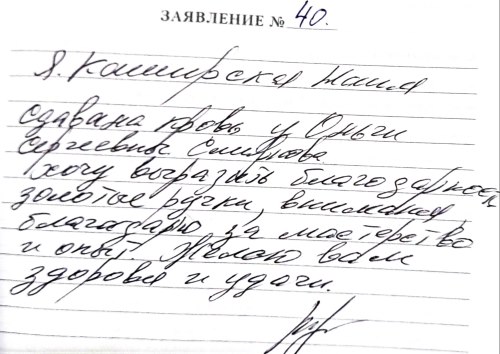 ЗАЯВЛЕНИЕ № 40.
Я. Каширская Наша
сдавала кровь у Ольги
Сергеевны Смирнова.
Хочу выразить благодарность
золотые ручки, внимания,
благодарю за мастерство
и опыт. Желаю вам
здоровья и удачи.